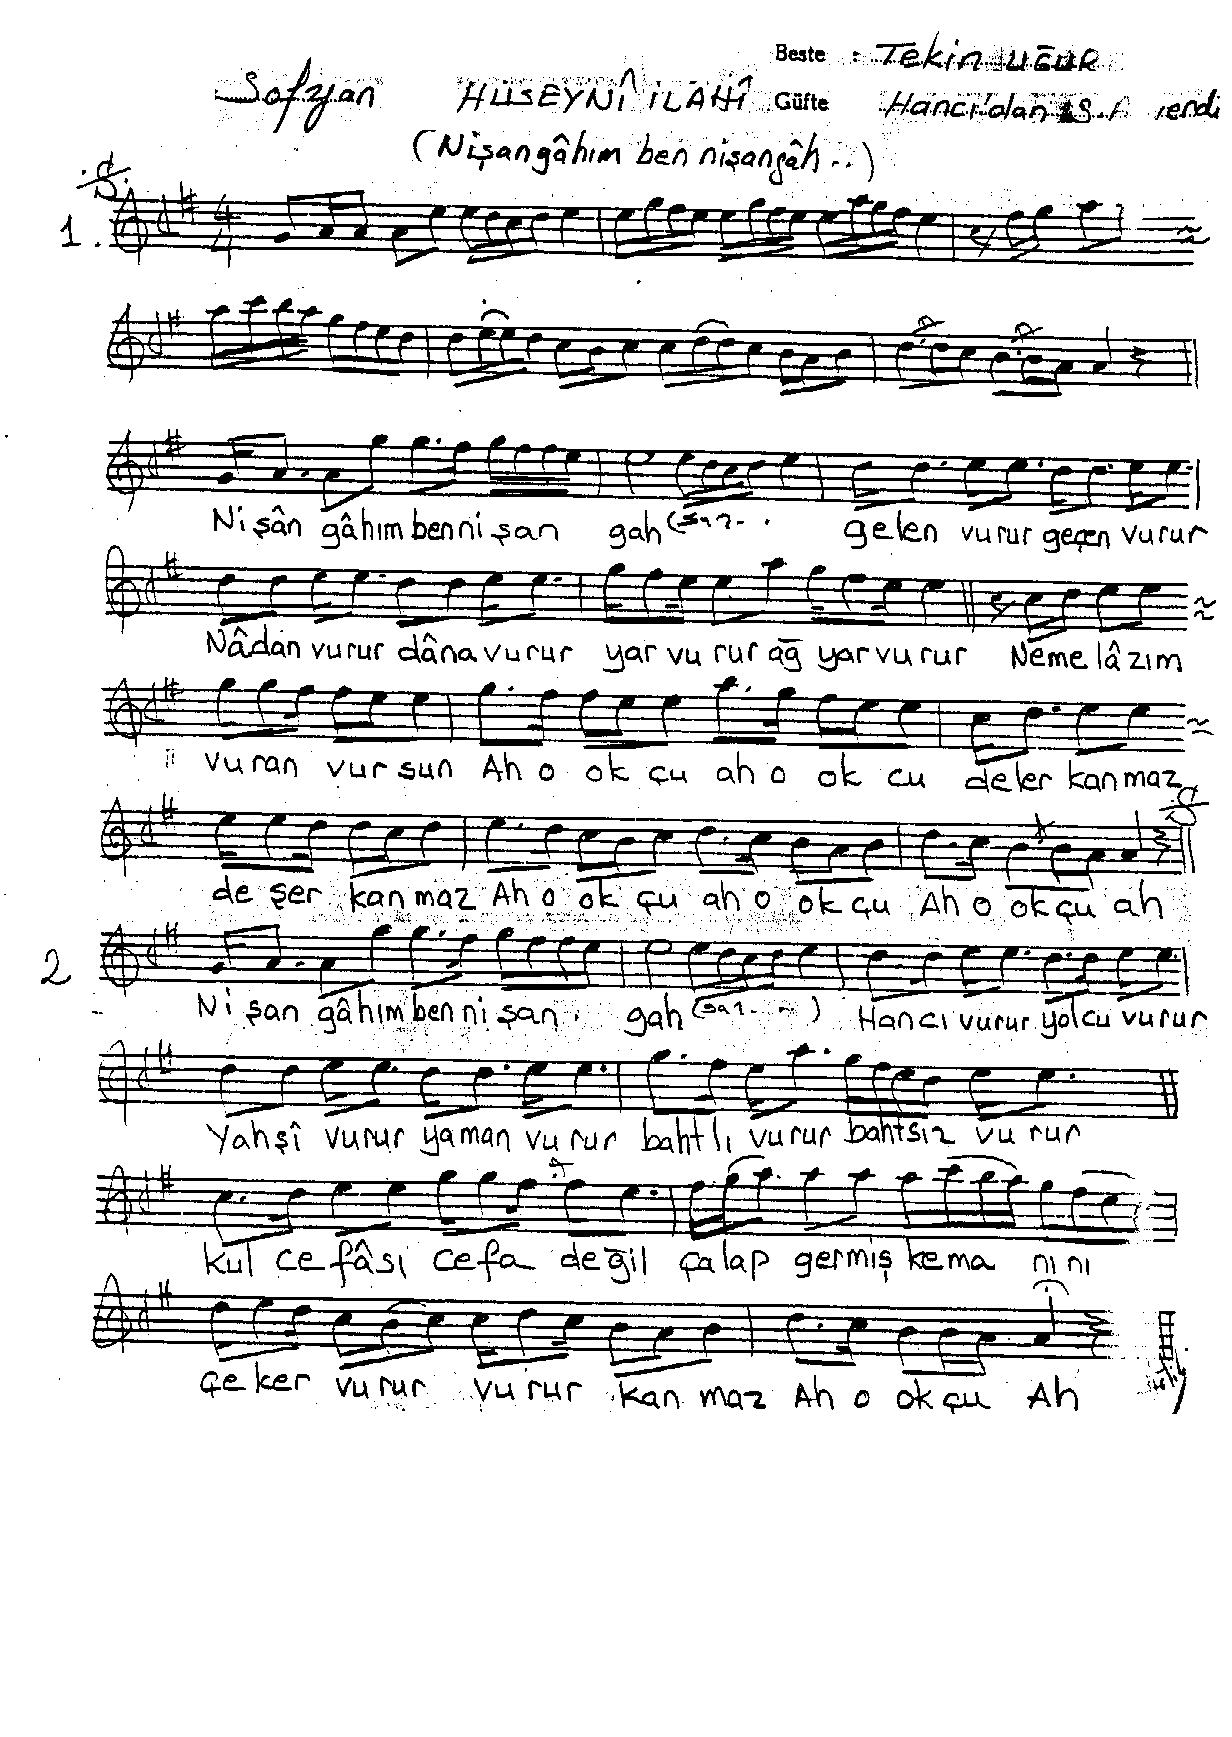 Beste : Tekin UĞUR
Sofyan HÜSEYNÎ İLÂHÎ Güfte Hancı'dan
(Nişangâhım ben nişangâh..)
1. 4/4
Ni şân gâhım ben ni şan gah (saz.. gelen vurur geçen vurur
Nâdan vurur dâna vurur yar vu rur ağ yar vurur Neme lâzım
vuran vur sun Ah o ok çu ah o ok cu deler kanmaz
de şer kan maz Ah o ok çu ah o ok çu Ah o ok çu ah
2 Ni şan gâhım ben ni şan gah (saz... ) Hancı vurur yolcu vurur
Yahşî vurur yaman vu rur bahtlı vurur bahtsız vu rur
kul ce fâsı cefa değil çalap germiş kema nını
çe ker vu rur vu rur kan maz Ah o ok çu Ah